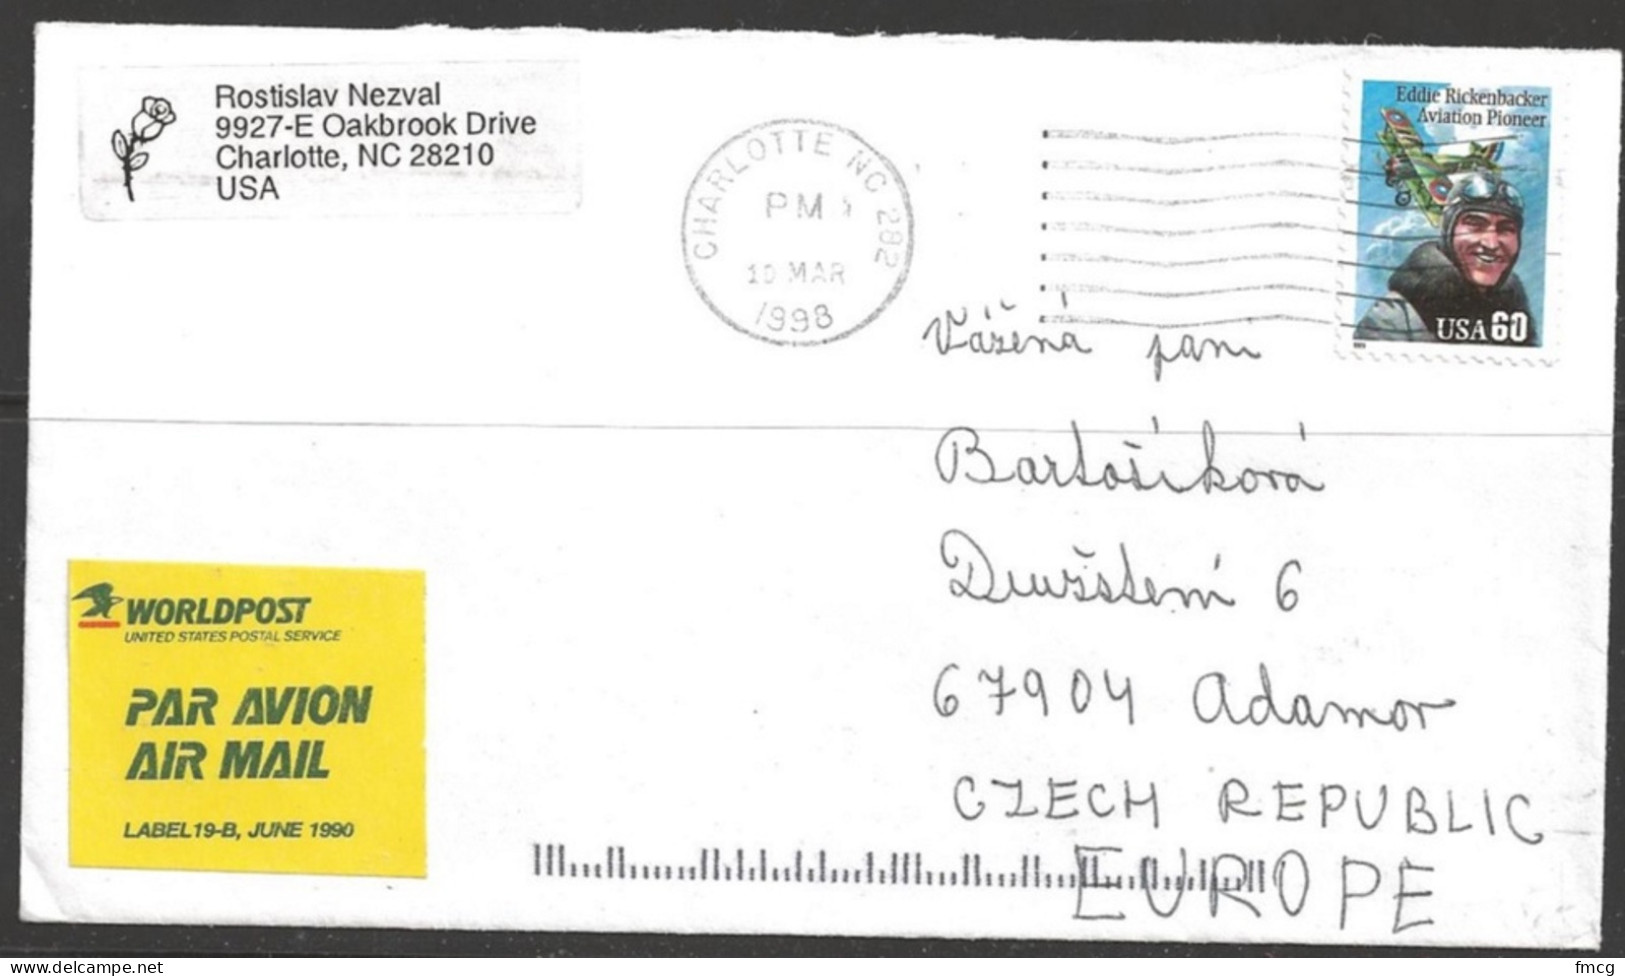 Rostislav Nezval
9927-E Oakbrook Drive
Charlotte, NC 28210
USA
CHARLOTTE NC 282
PM
10 MAR
1998
Eddie Rickenbacker
Aviation Pioneer
USA 60
Vážená paní
Bartošíková
Družstevní 6
67904 Adamov
CZECH REPUBLIC
EUROPE
WORLDPOST
UNITED STATES POSTAL SERVICE
PAR AVION
AIR MAIL
LABEL 19-B, JUNE 1990
fmcg